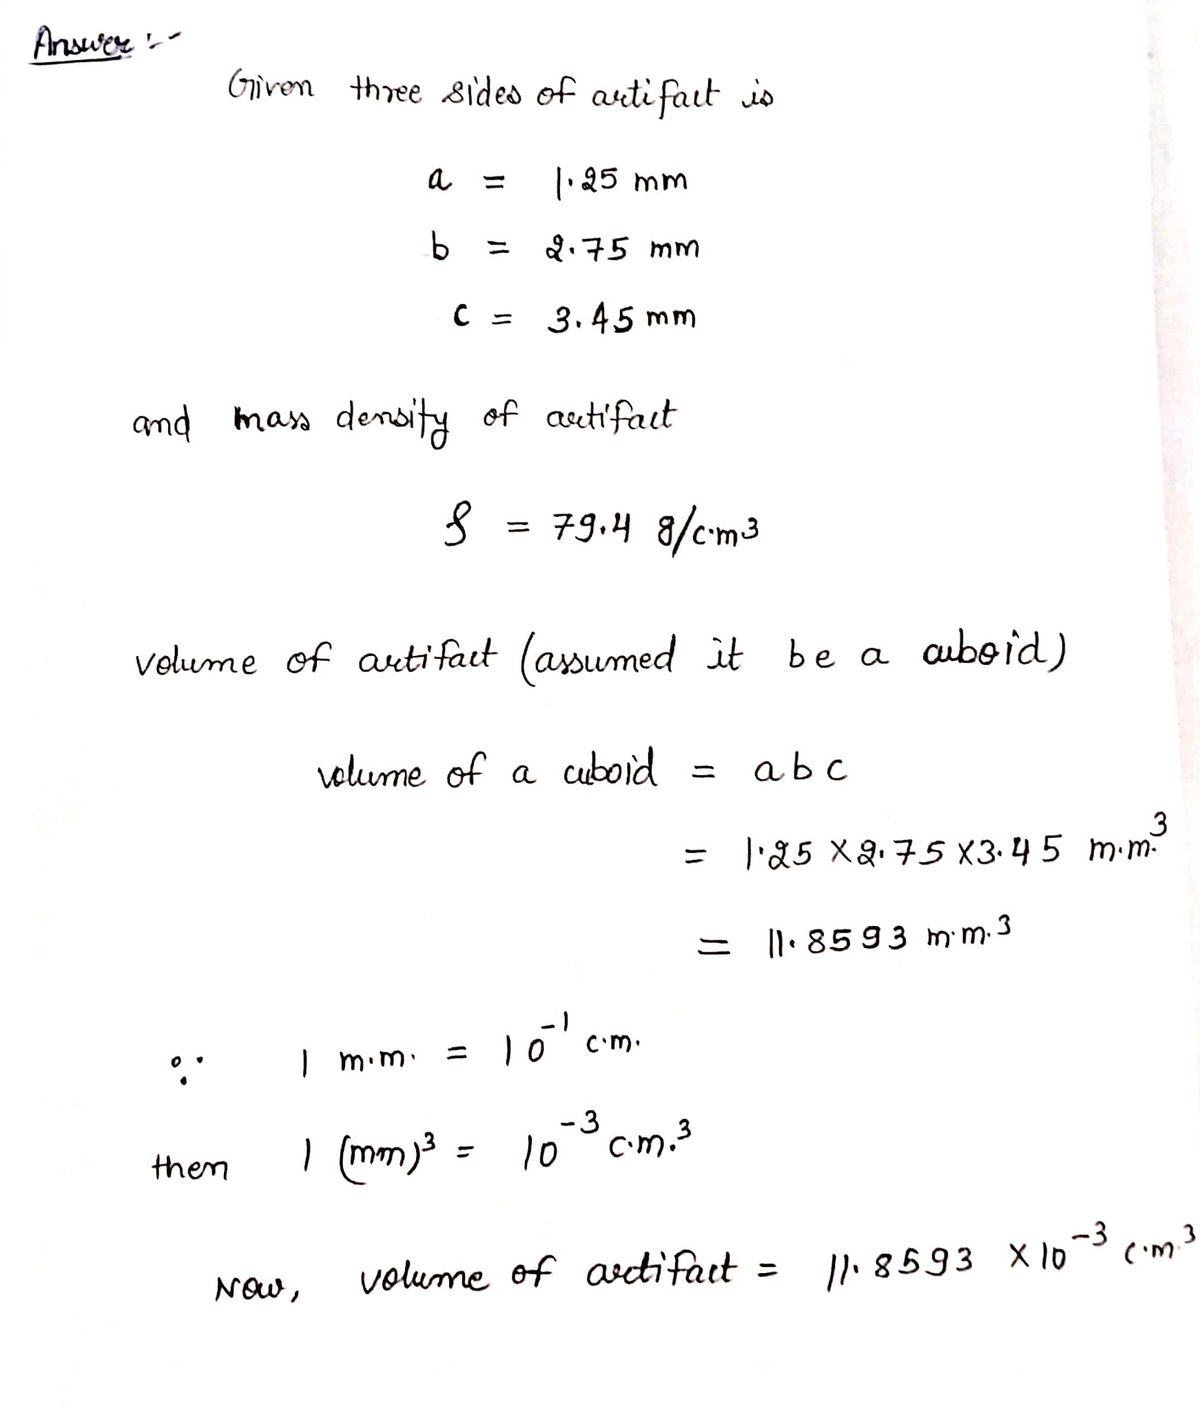 Answer :-
Given three sides of artifact is
a = 1.25 mm
b = 2.75 mm
c = 3.45 mm
and mass density of artifact
ρ = 79.4 g/c.m3
volume of artifact (assumed it be a cuboid)
volume of a cuboid = abc
= 1.25 X 2.75 X 3.45 m.m.³
= 11.8593 m.m.³
∵ 1 m.m. = 10⁻¹ c.m.
then 1 (mm)³ = 10⁻³ c.m.³
Now, volume of artifact = 11.8593 X 10⁻³ c.m.³